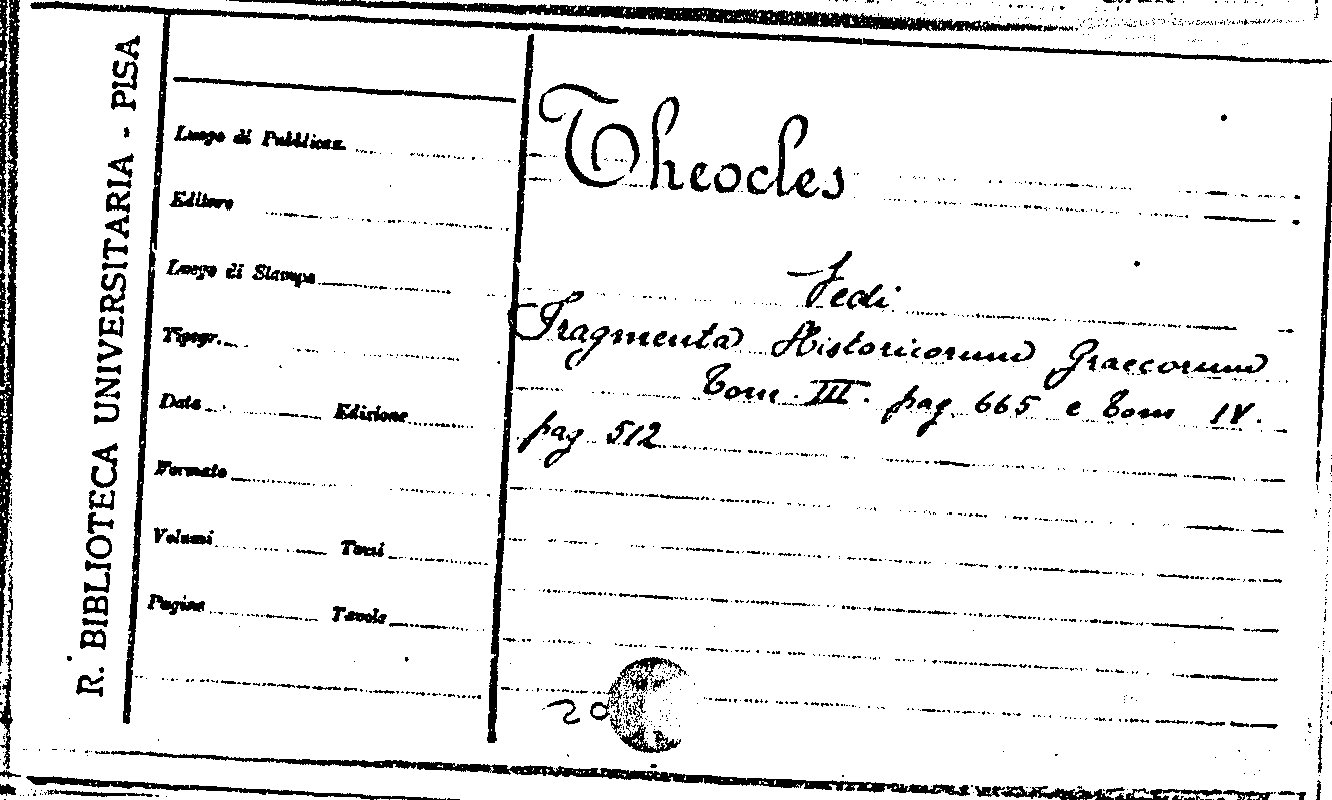 R. BIBLIOTECA UNIVERSITARIA - PISA
Luogo di Pubblicaz.
Editore
Luogo di Stampa
Tipogr.
Data Edizione
Formato
Volumi Tomi
Pagine Tavole
Theocles
Vedi
Fragmenta Historicorum Graecorum
Tom. III. pag 665 e Tom IV.
pag 512
20